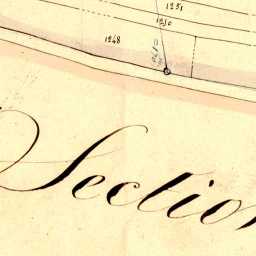 1251
1250
1248
Section